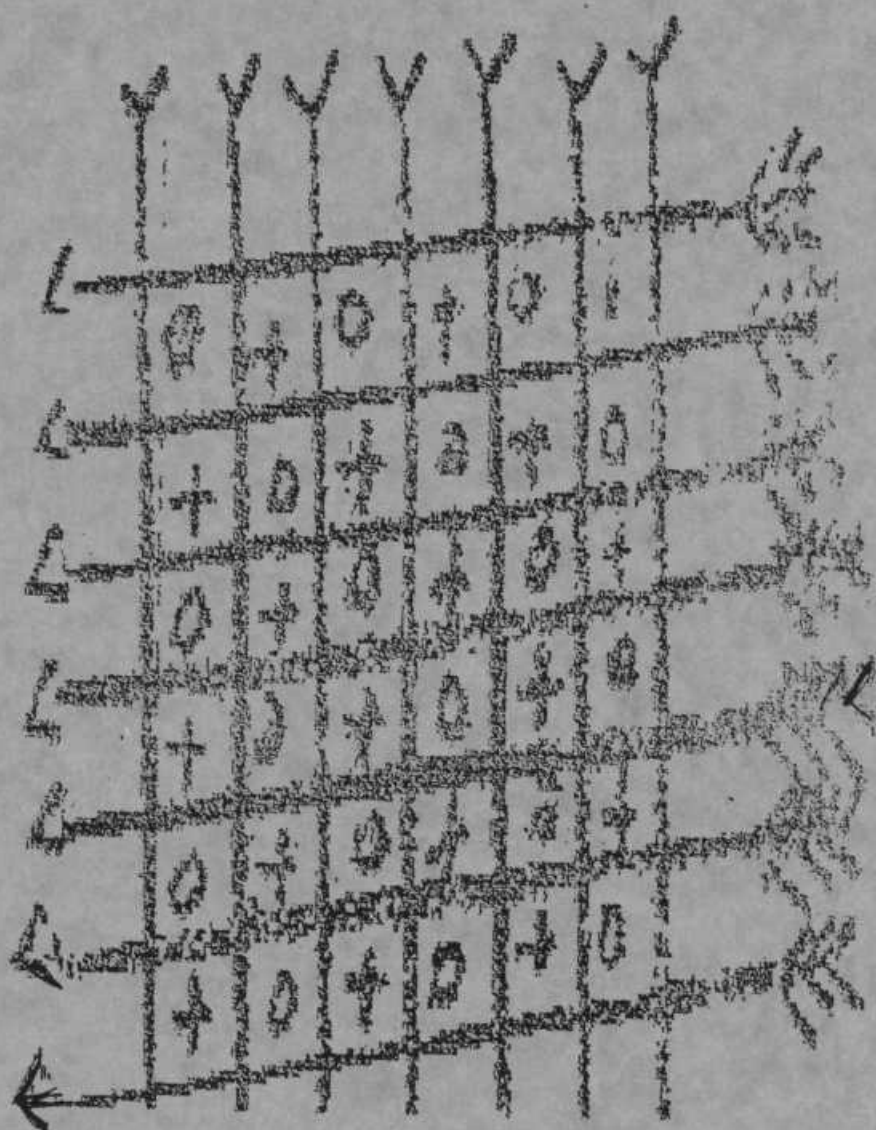 0 + 0 + 0
+ 0 + 0 + 0
0 + 0 + 0 +
+ 0 + 0 + 0
0 + 0 + 0 +
+ 0 + 0 + 0